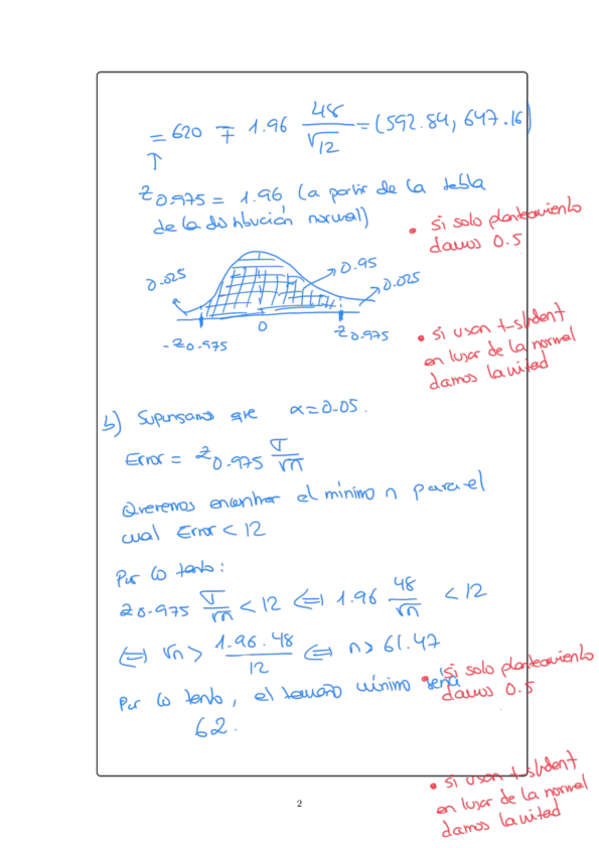 = 620 ∓ 1.96 48/√12 = (592.84, 647.16)
↑
z0.975 = 1.96 (a partir de la tabla
de la distribución normal)
• si solo planteamiento
damos 0.5
0.025
0.95
0.025
-z0.975
0
z0.975
• si usan t-student
en lugar de la normal
damos la mitad
b) Supongamos que α=0.05.
Error = z0.975 σ/√n
Queremos encontrar el mínimo n para el
cual Error < 12
Por lo tanto:
z0.975 σ/√n < 12 ⇔ 1.96 48/√n < 12
⇔ √n > 1.96·48/12 ⇔ n > 61.47
Por lo tanto, el tamaño mínimo será
62.
• si solo planteamiento
damos 0.5
• si usan t-student
en lugar de la normal
damos la mitad
2